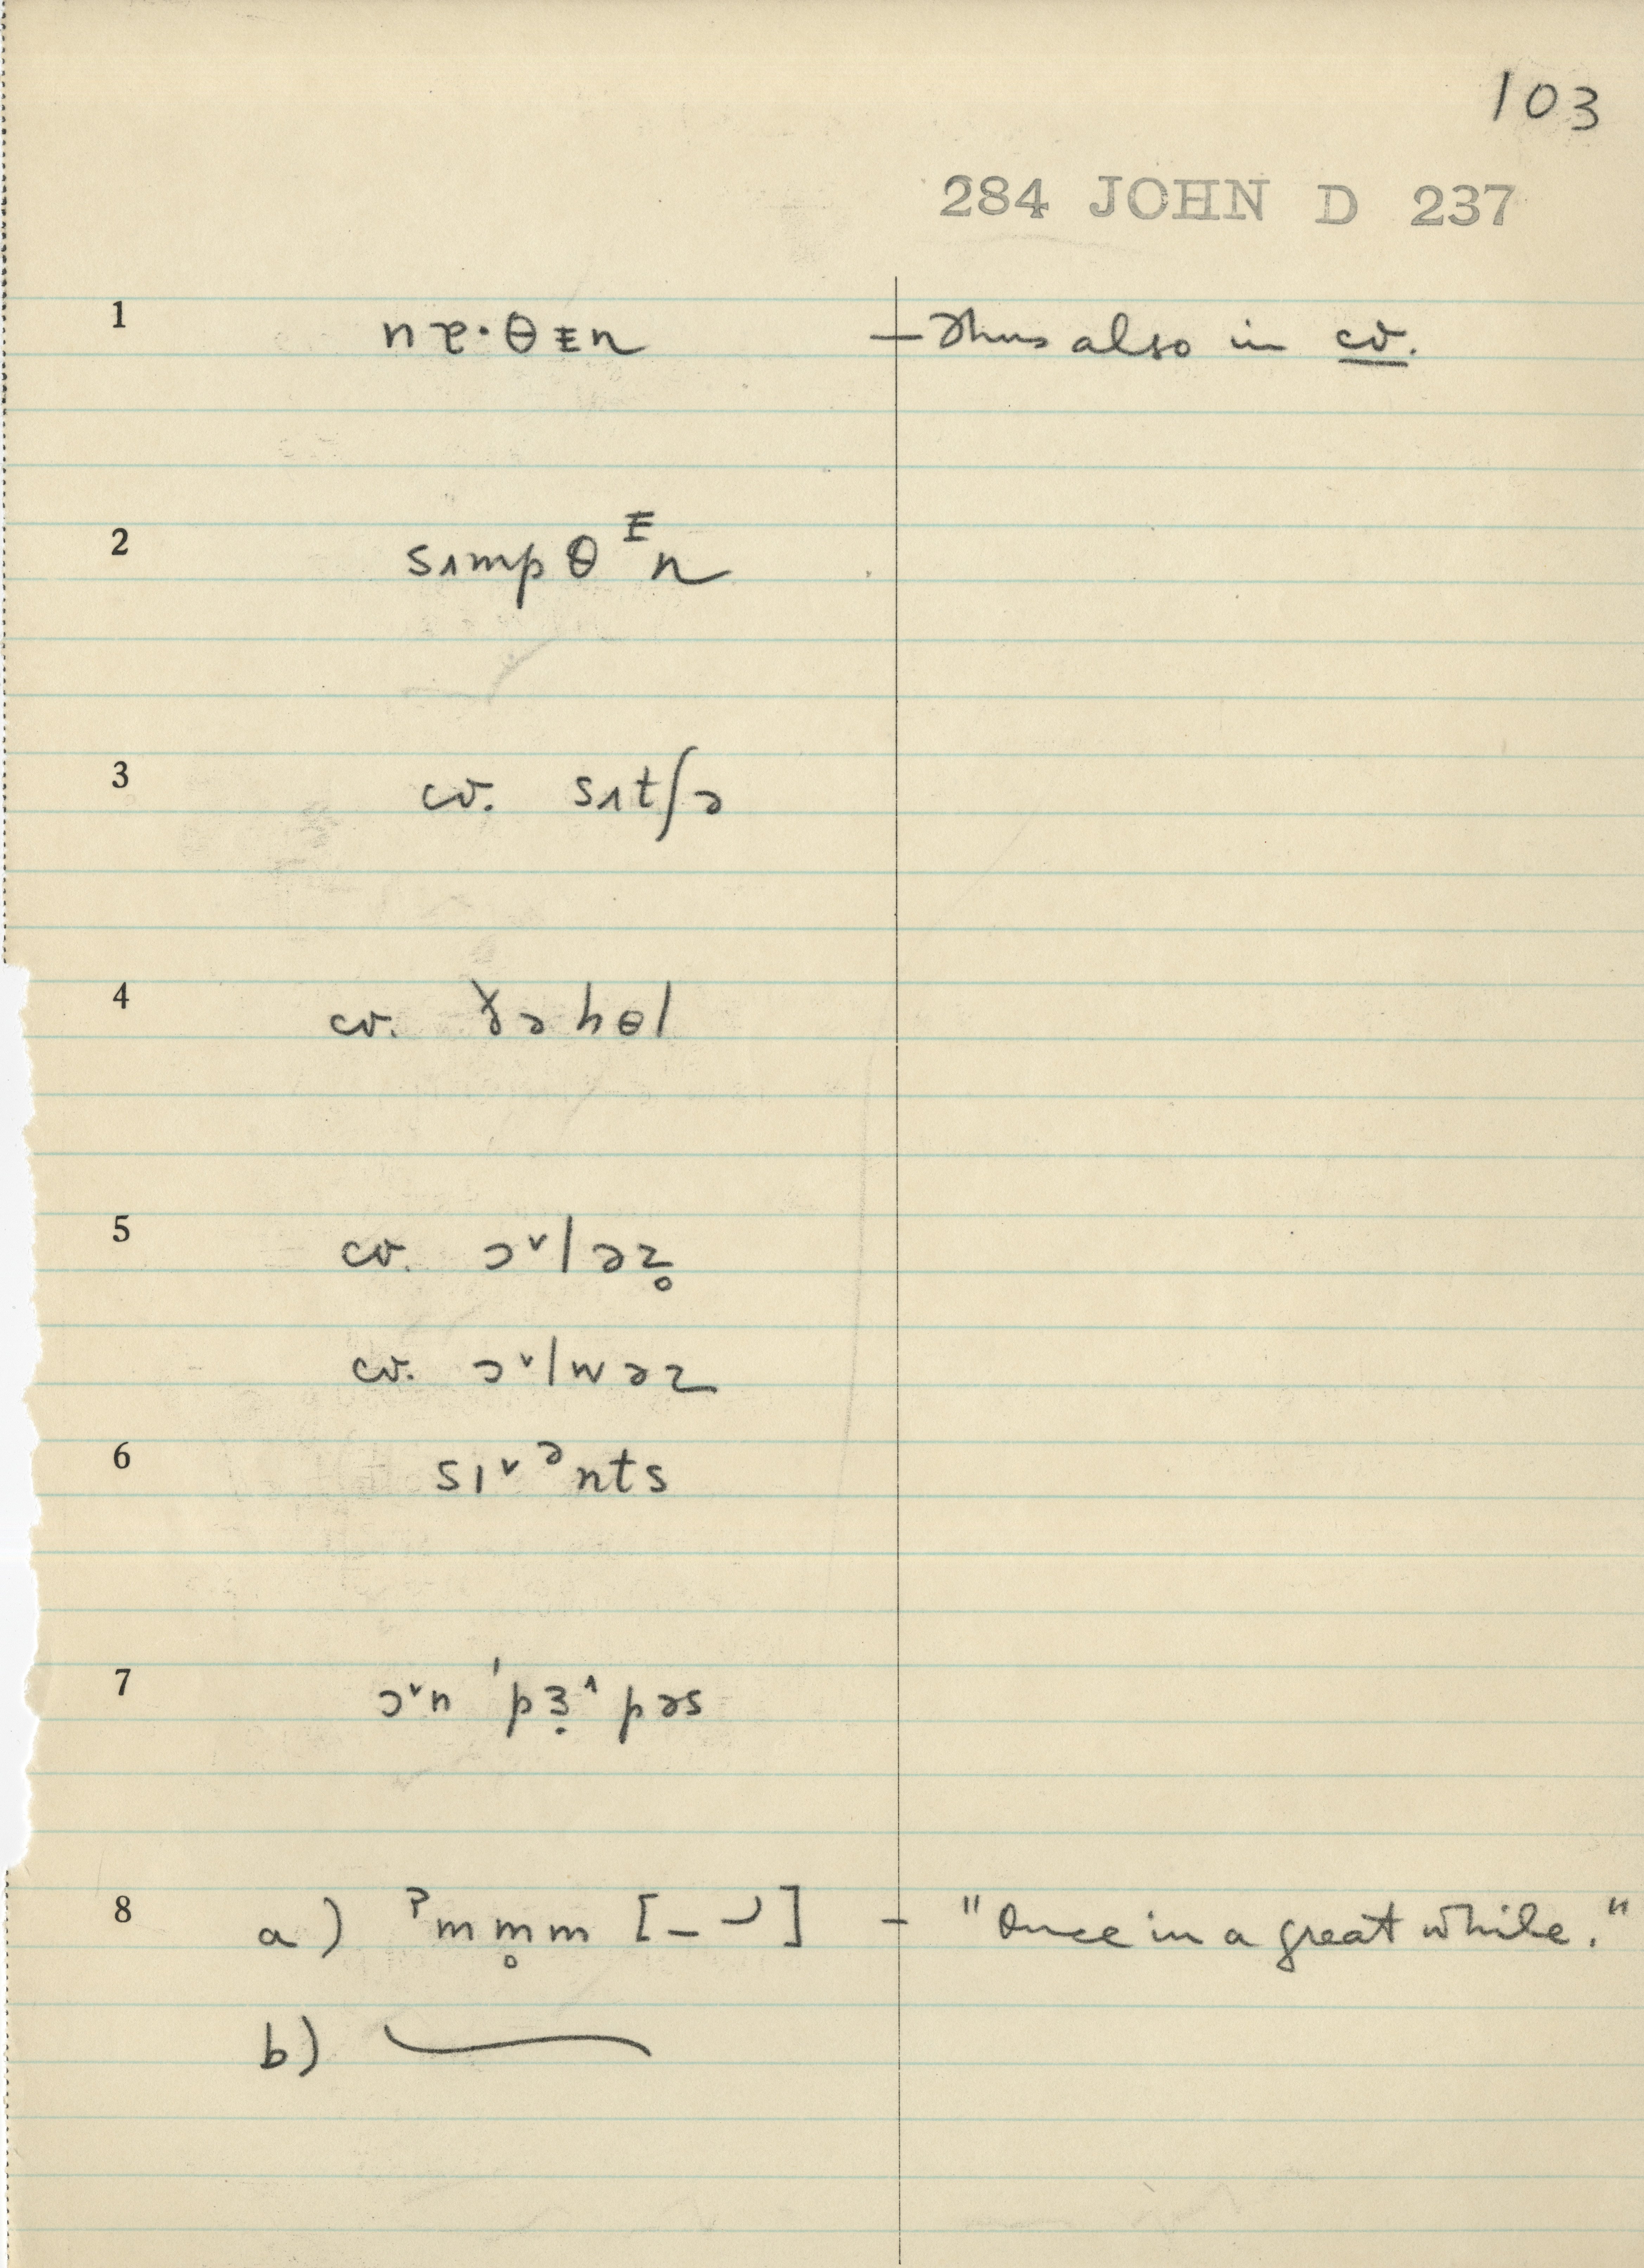 103
284 JOHN D 237
1 nɐ·θᵻn — Thus also in cv.
2 sɪmpθᵻn
3 cv. sɪtʃə
4 cv. ɤəhɵl
5 cv. ɔ˅ləz̥
cv. ɔ˅lwəz
6 sɪ˅ᵊnts
7 ɔ˅n ˈpɜ̣˄pəs
8 a) ˀmm̥m [– ‿] – "Once in a great while."
b)